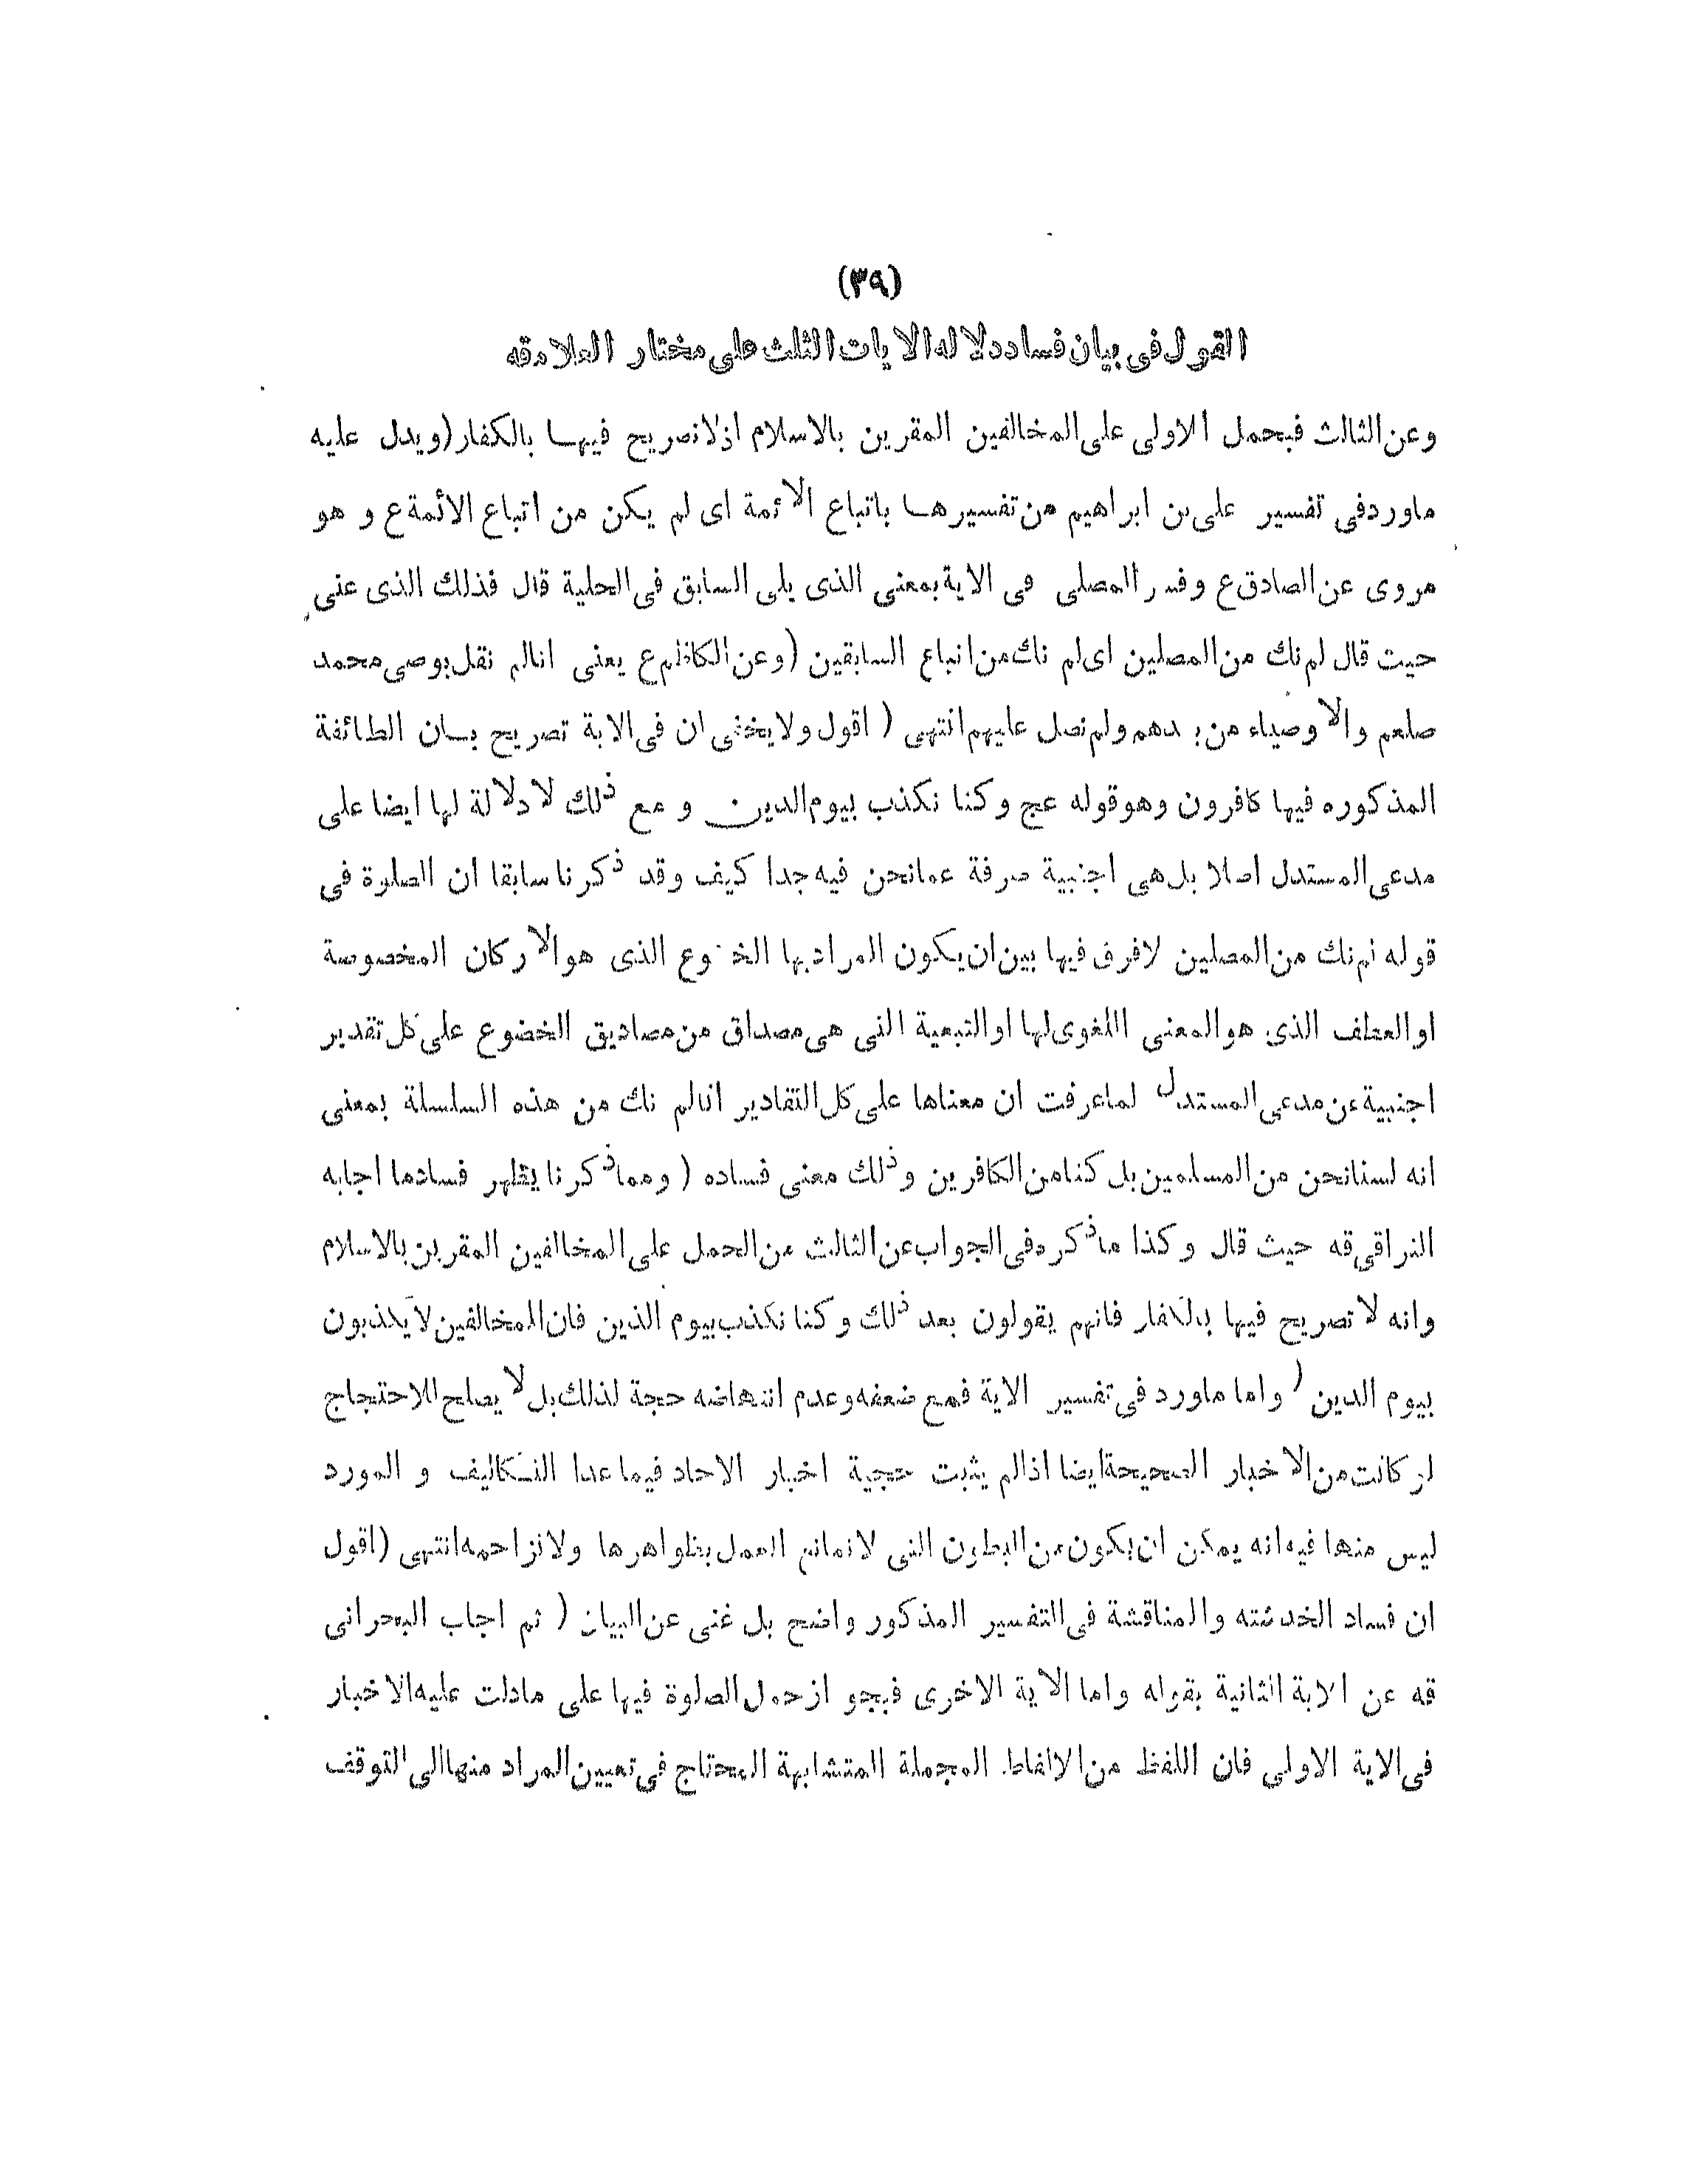 (٣٩)
القول فى بيان فساد دلاله الايات الثلث على مختار العلامه قه
وعن الثالث فبحمل الاولى على المخالفين المقرين بالاسلام اذلا تصريح فيهـا بالكفار (ويدل عليه
ماورد فى تفسير على بن ابراهيم من تفسيرهـا باتباع الائمة اى لم يكن من اتباع الائمة ع و هو
مروى عن الصادق ع وفسر المصلى فى الاية بمعنى الذى يلى السابق فى الحلية قال فذلك الذى عنى
حيت قال لم نك من المصلين اى لم نك من اتباع السابقين (وعن الكاظم ع يعنى انالم نقل بوصى محمد
صلعم والاوصياء من بعدهم ولم نصل عليهم انتهى ( اقول ولا يخفى ان فى الاية تصريح بـان الطائفة
المذكوره فيها كافرون وهو قوله عج وكنا نكذب بيوم الدين و مع ذلك لا دلالة لها ايضا على
مدعى المستدل اصلا بل هى اجنبية صرفة عمانحن فيه جدا كيف وقد ذكرنا سابقا ان الصلوة فى
قوله لم نك من المصلين لا فرق فيها بين ان يكون المراد بها الخضوع الذى هو الاركان المخصوصة
او العطف الذى هو المعنى اللغوى لها او التبعية التى هى مصداق من مصاديق الخضوع على كل تقدير
اجنبية عن مدعى المستدل لما عرفت ان معناها على كل التقادير انالم نك من هذه السلسلة بمعنى
انه لسنا نحن من المسلمين بل كنا من الكافرين وذلك معنى فساده ( ومما ذكرنا يظهر فساد ما اجابه
النراقى قه حيث قال وكذا ماذكره فى الجواب عن الثالث من الحمل على المخالفين المقرين بالاسلام
وانه لا تصريح فيها بالكفار فانهم يقولون بعد ذلك وكنا نكذب بيوم الدين فان المخالفين لا يكذبون
بيوم الدين ( واما ماورد فى تفسير الاية فمع ضعفه وعدم انتهاضه حجة لذلك بل لا يصلح للاحتجاج
لو كانت من الاخبار الصحيحة ايضا اذالم يثبت حجية اخبار الاحاد فيما عدا التكاليف و المورد
ليس منها فيه انه يمكن ان يكون من البطون التى لا تمانع العمل بظواهرها ولا تزاحمه انتهى (اقول
ان فساد الخدشته والمناقشة فى التفسير المذكور واضح بل غنى عن البيان ( ثم اجاب البحرانى
قه عن الاية الثانية بقوله واما الاية الاخرى فيجو از حمل الصلوة فيها على مادلت عليه الاخبار
فى الاية الاولى فان اللفظ من الالفاظ المجملة المتشابهة المحتاج فى تعيين المراد منها الى التوقف